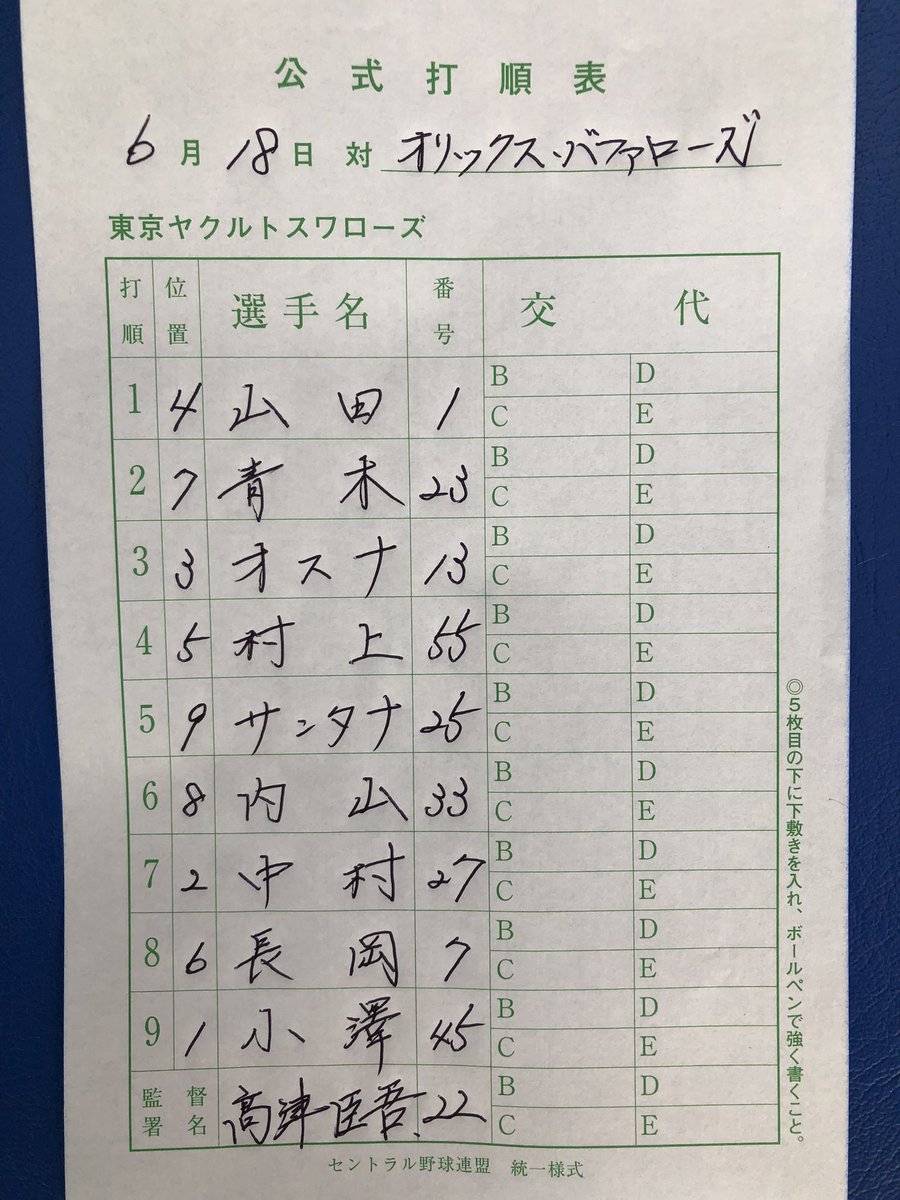 公式打順表
6月18日 対 オリックス・バファローズ
東京ヤクルトスワローズ
打順 位置 選手名 番号 交代
1 4 山田 1 B D C E
2 7 青木 23 B D C E
3 3 オスナ 13 B D C E
4 5 村上 55 B D C E
5 9 サンタナ 25 B D C E
6 8 内山 33 B D C E
7 2 中村 27 B D C E
8 6 長岡 7 B D C E
9 1 小澤 45 B D C E
監督署名 高津臣吾 22 B D C E
セントラル野球連盟 統一様式
◎5枚目の下に下敷きを入れ、ボールペンで強く書くこと。